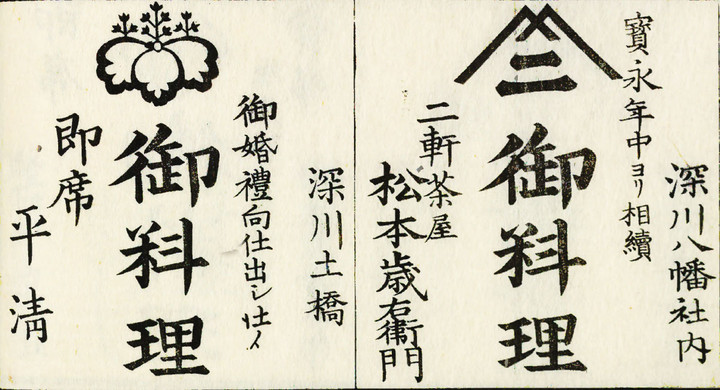 深川八幡社内
寳永年中ヨリ相續
御料理
二軒茶屋
松本歳右衛門
深川土橋
御婚禮向仕出シ仕候
御料理
即席
平清